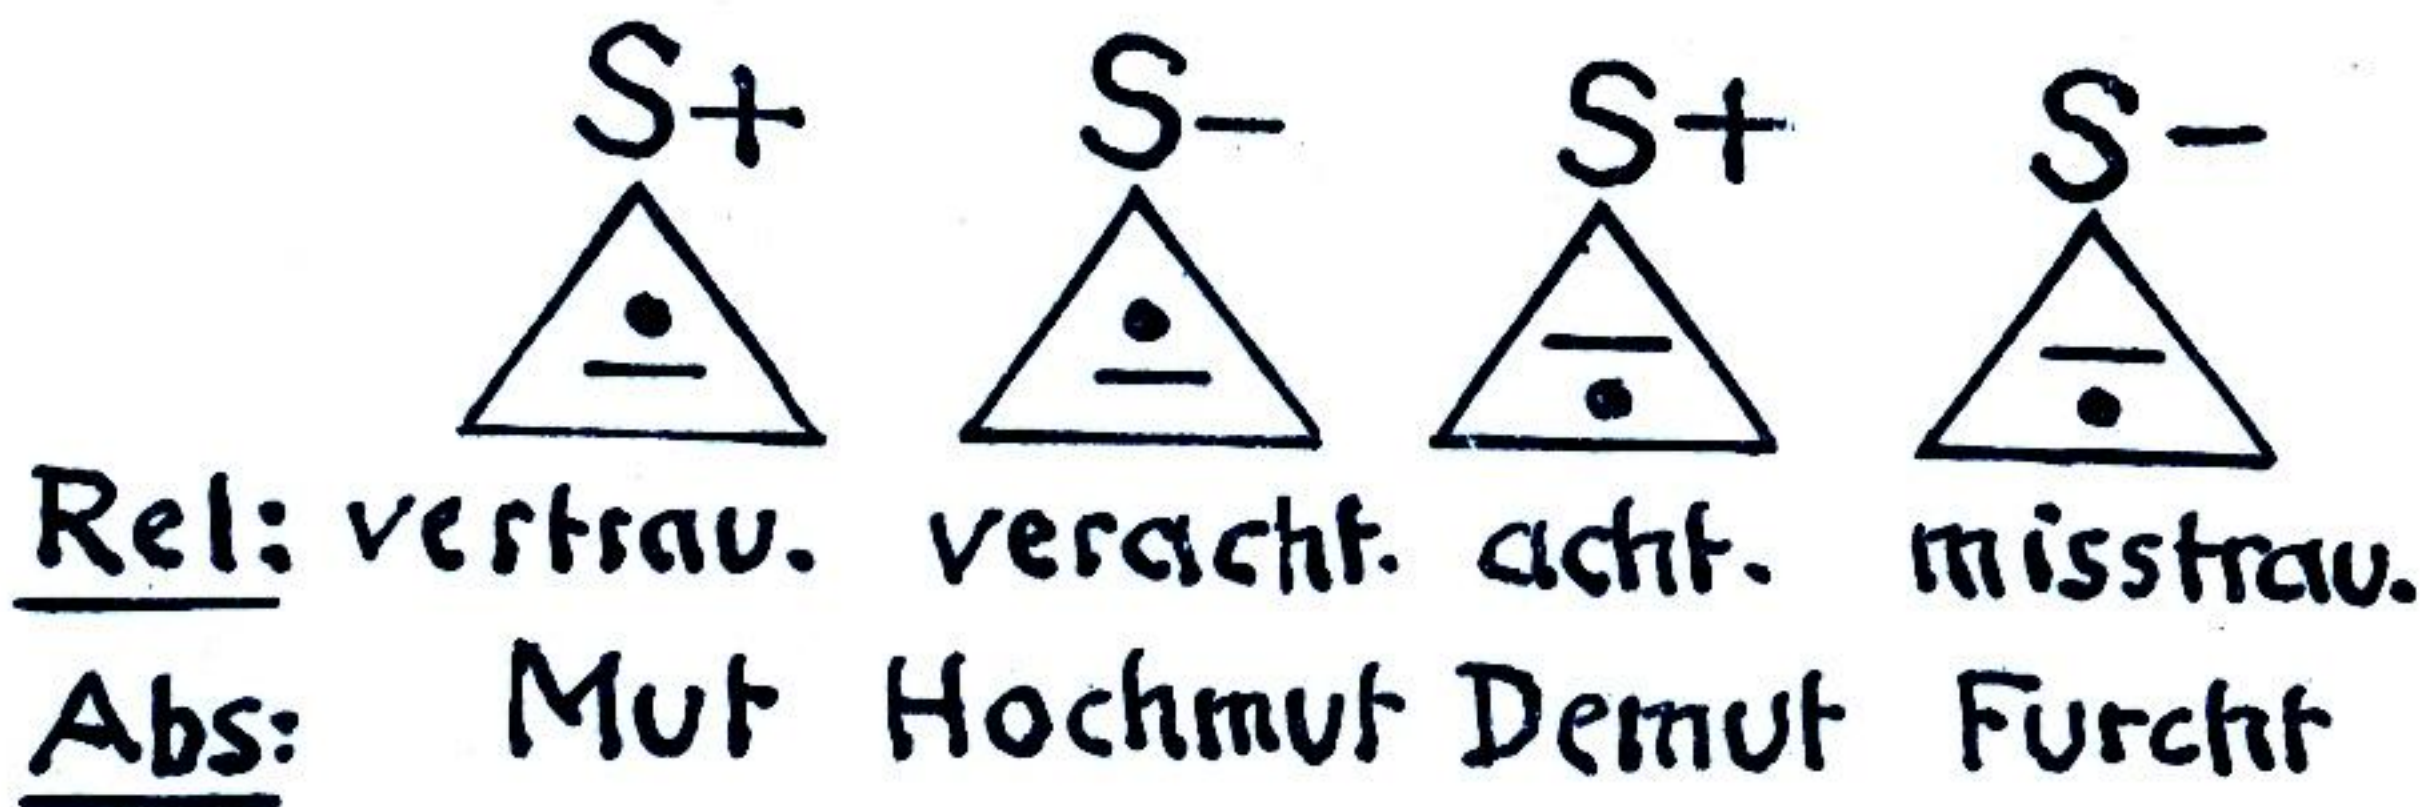 S+ S– S+ S–
Rel: vertrau. veracht. acht. misstrau.
Abs: Mut Hochmut Demut Furcht